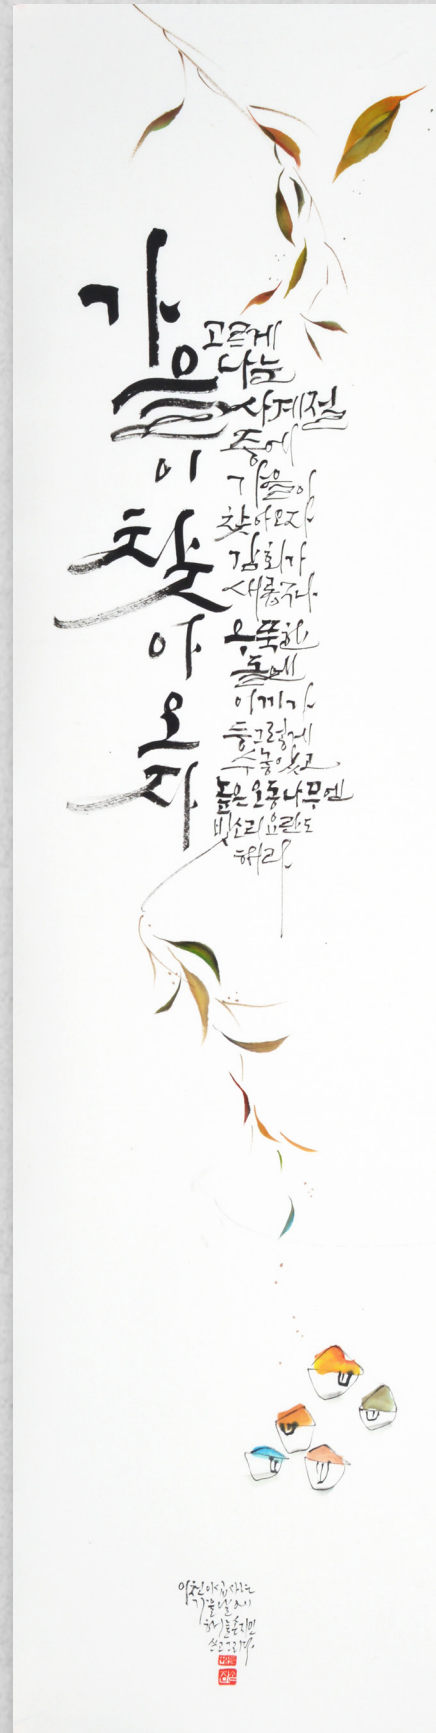 가을
이
찾
아
오
자
고르게
나눈
사계절
중에
가을이
찾아오자
감회가
새롭구나
우뚝한
돌엔
이끼가
둥그렇게
수놓았고
높은 오동나무엔
빗소리 요란도
해라
가을날에
쓰고 그리다